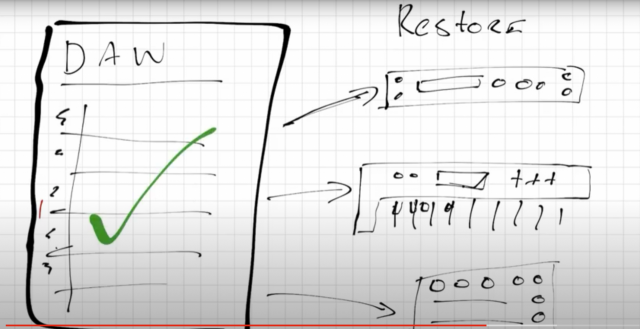 Restore
DAW